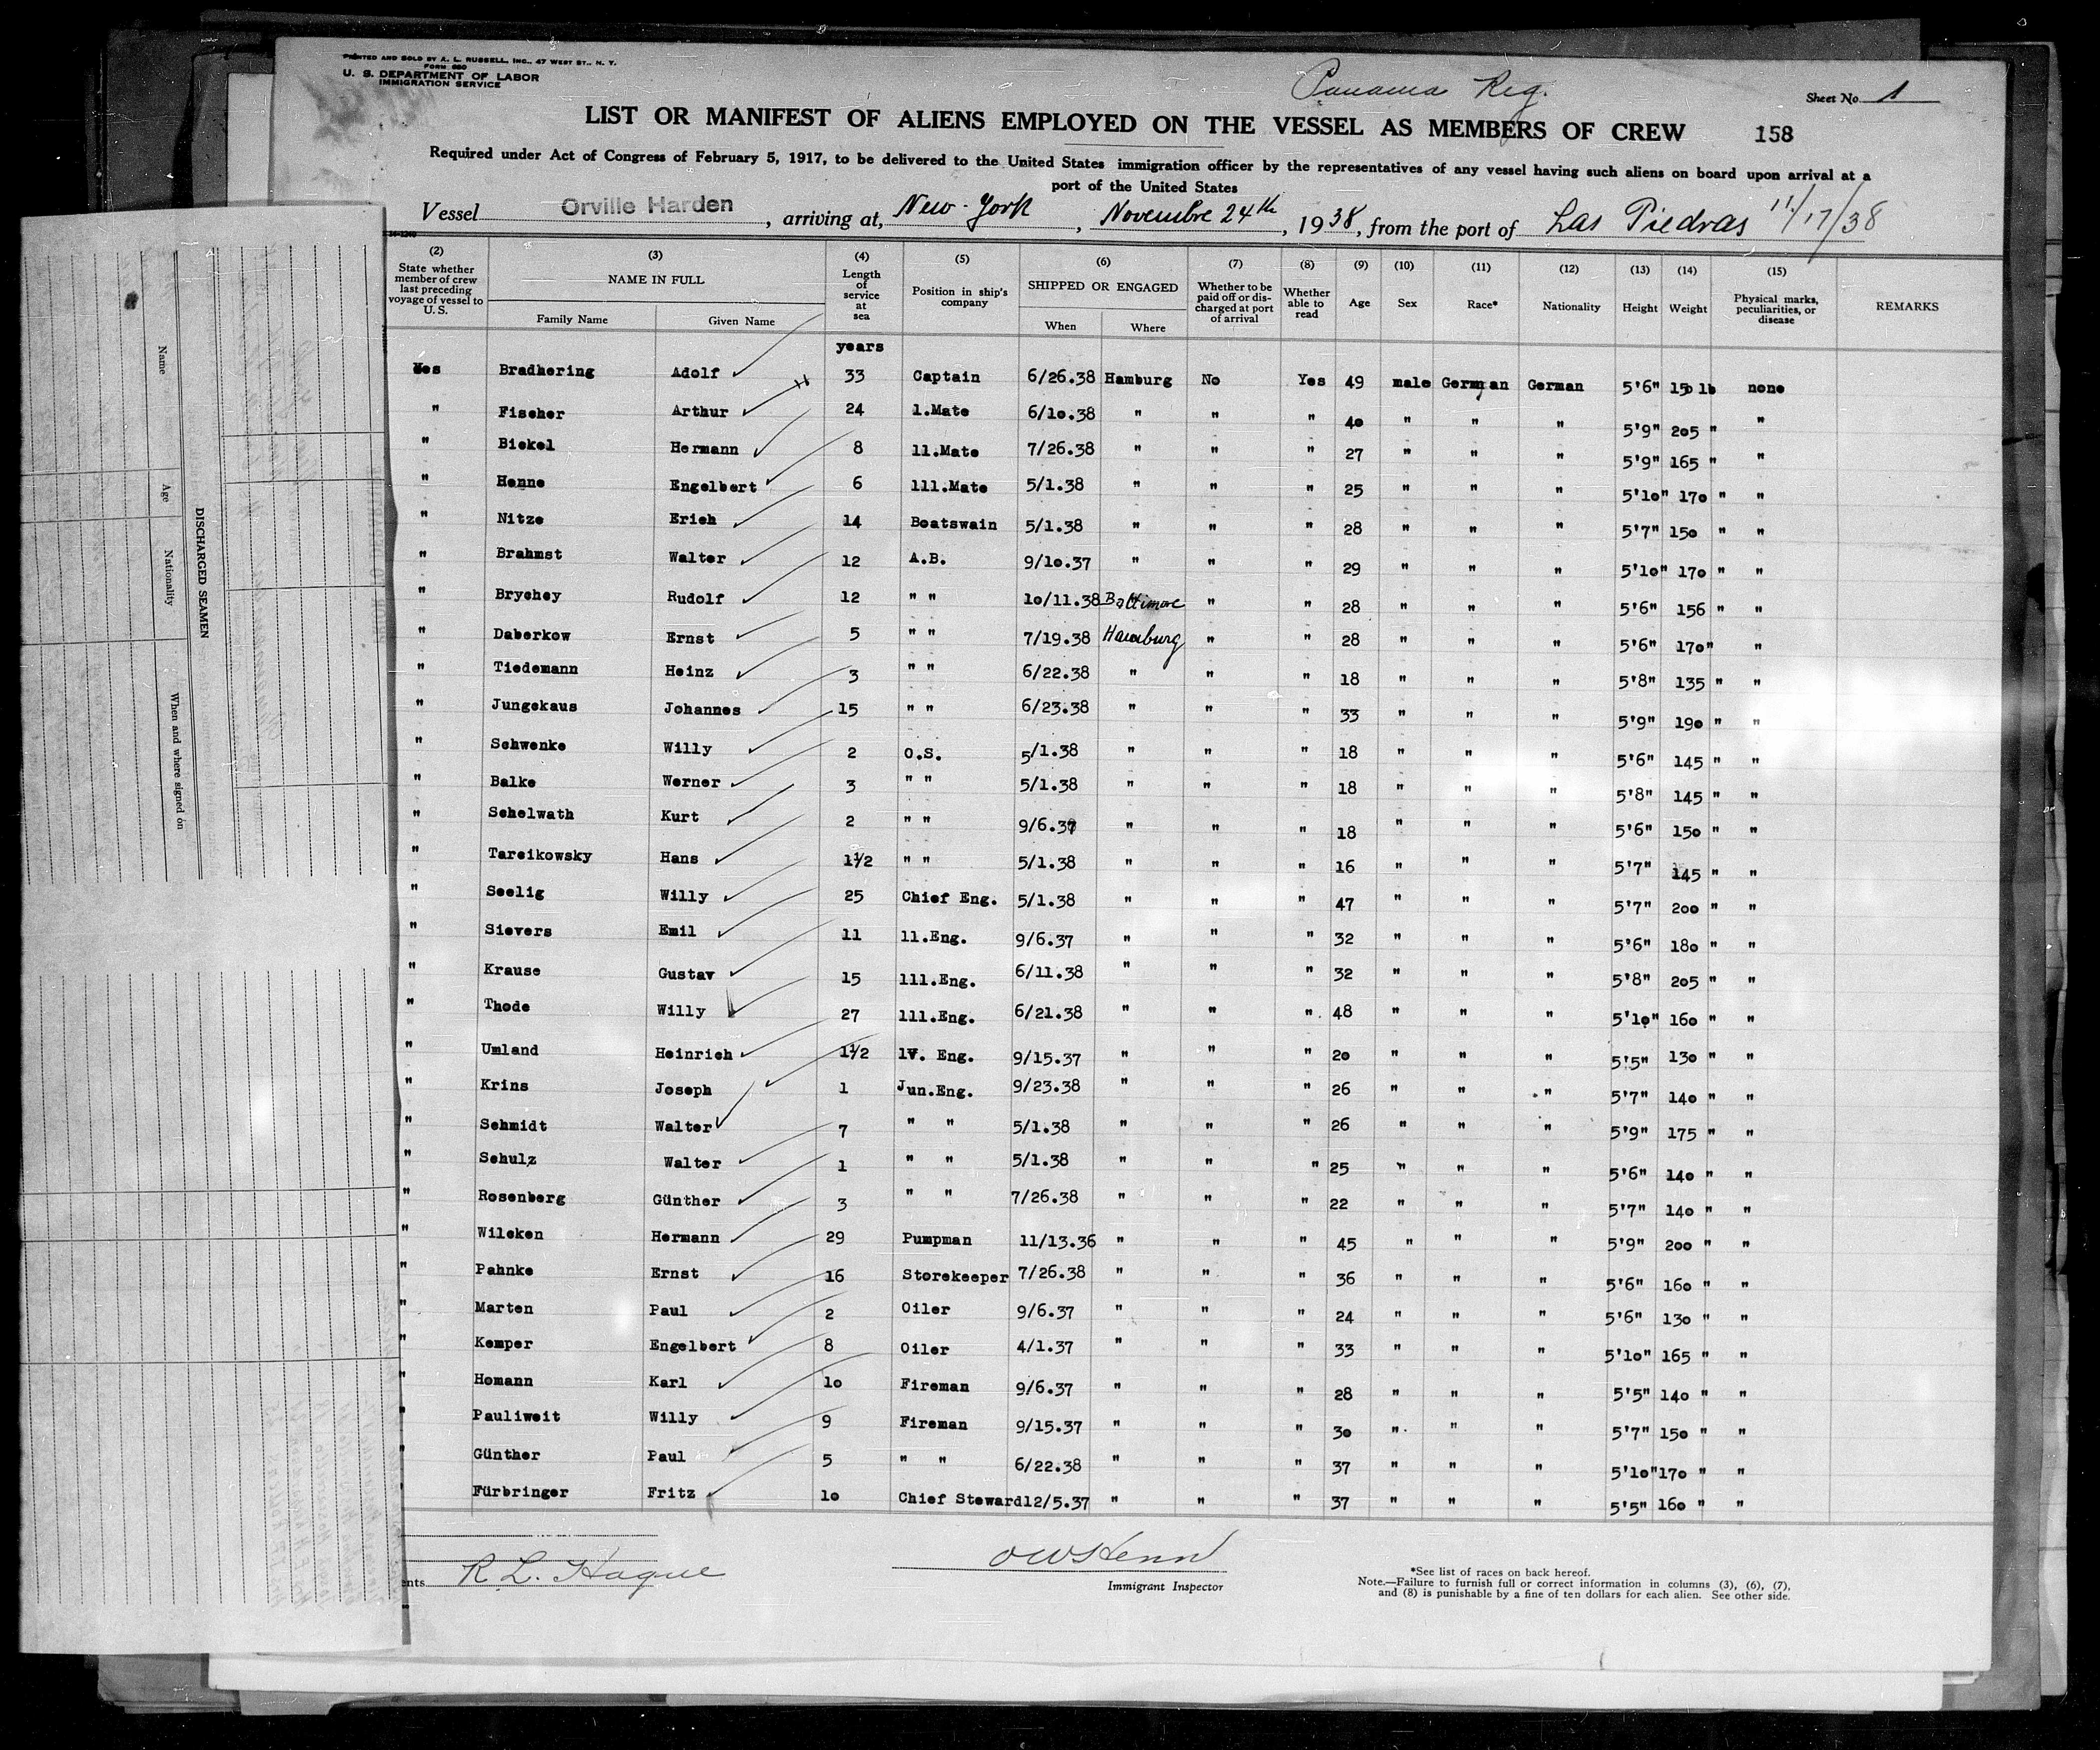 PRINTED AND SOLD BY A. L. RUSSELL, INC., 47 WEST ST., N. Y.
FORM 680
U. S. DEPARTMENT OF LABOR
IMMIGRATION SERVICE
Panama Reg.
Sheet No. 1
LIST OR MANIFEST OF ALIENS EMPLOYED ON THE VESSEL AS MEMBERS OF CREW 158
Required under Act of Congress of February 5, 1917, to be delivered to the United States immigration officer by the representatives of any vessel having such aliens on board upon arrival at a
port of the United States
Vessel Orville Harden, arriving at, New-York, Novembre 24th, 1938, from the port of Las Piedras 11/17/38
(2) (3) (4) (5) (6) (7) (8) (9) (10) (11) (12) (13) (14) (15)
State whether member of crew last preceding voyage of vessel to U. S. NAME IN FULL Family Name Given Name Length of service at sea Position in ship's company SHIPPED OR ENGAGED When Where Whether to be paid off or discharged at port of arrival Whether able to read Age Sex Race* Nationality Height Weight Physical marks, peculiarities, or disease REMARKS
years
Yes Bradhering Adolf 33 Captain 6/26.38 Hamburg No Yes 49 male German German 5'6" 150 lb none
" Fischer Arthur 24 1.Mate 6/10.38 " " " 40 " " " 5'9" 205 " "
" Bickel Hermann 8 11.Mate 7/26.38 " " " 27 " " " 5'9" 165 " "
" Henne Engelbert 6 111.Mate 5/1.38 " " " 25 " " " 5'10" 170 " "
" Nitze Erich 14 Boatswain 5/1.38 " " " 28 " " " 5'7" 150 " "
" Brahmst Walter 12 A.B. 9/10.37 " " " 29 " " " 5'10" 170 " "
" Brychey Rudolf 12 " " 10/11.38 Baltimore " " 28 " " " 5'6" 156 " "
" Daberkow Ernst 5 " " 7/19.38 Hamburg " " 28 " " " 5'6" 170" "
" Tiedemann Heinz 3 " " 6/22.38 " " " 18 " " " 5'8" 135 " "
" Jungekaus Johannes 15 " " 6/23.38 " " " 33 " " " 5'9" 190 " "
" Schwenke Willy 2 O.S. 5/1.38 " " " 18 " " " 5'6" 145 " "
" Balke Werner 3 " " 5/1.38 " " " 18 " " " 5'8" 145 " "
" Schelwath Kurt 2 " " 9/6.37 " " " 18 " " " 5'6" 150 " "
" Tareikowsky Hans 1½ " " 5/1.38 " " " 16 " " " 5'7" 145 " "
" Seelig Willy 25 Chief Eng. 5/1.38 " " " 47 " " " 5'7" 200 " "
" Sievers Emil 11 11.Eng. 9/6.37 " " " 32 " " " 5'6" 180 " "
" Krause Gustav 15 111.Eng. 6/11.38 " " " 32 " " " 5'8" 205 " "
" Thode Willy 27 111.Eng. 6/21.38 " " " 48 " " " 5'10" 160 " "
" Umland Heinrich 1½ 1V. Eng. 9/15.37 " " " 20 " " " 5'5" 130 " "
" Krins Joseph 1 Jun.Eng. 9/23.38 " " " 26 " " " 5'7" 140 " "
" Schmidt Walter 7 " " 5/1.38 " " " 26 " " " 5'9" 175 " "
" Schulz Walter 1 " " 5/1.38 " " " 25 " " " 5'6" 140 " "
" Rosenberg Günther 3 " " 7/26.38 " " " 22 " " " 5'7" 140 " "
" Wilcken Hermann 29 Pumpman 11/13.36 " " " 45 " " " 5'9" 200 " "
" Pahnke Ernst 16 Storekeeper 7/26.38 " " " 36 " " " 5'6" 160 " "
" Marten Paul 2 Oiler 9/6.37 " " " 24 " " " 5'6" 130 " "
" Kemper Engelbert 8 Oiler 4/1.37 " " " 33 " " " 5'10" 165 " "
" Homann Karl 10 Fireman 9/6.37 " " " 28 " " " 5'5" 140 " "
" Pauliweit Willy 9 Fireman 9/15.37 " " " 30 " " " 5'7" 150 " "
" Günther Paul 5 " " 6/22.38 " " " 37 " " " 5'10" 170 " "
" Fürbringer Fritz 10 Chief Steward 12/5.37 " " " 37 " " " 5'5" 160 " "
R. L. Hague
Immigrant Inspector
*See list of races on back hereof.
Note.—Failure to furnish full or correct information in columns (3), (6), (7),
and (8) is punishable by a fine of ten dollars for each alien. See other side.
DISCHARGED SEAMEN
Name
Age
Nationality
When and where signed on